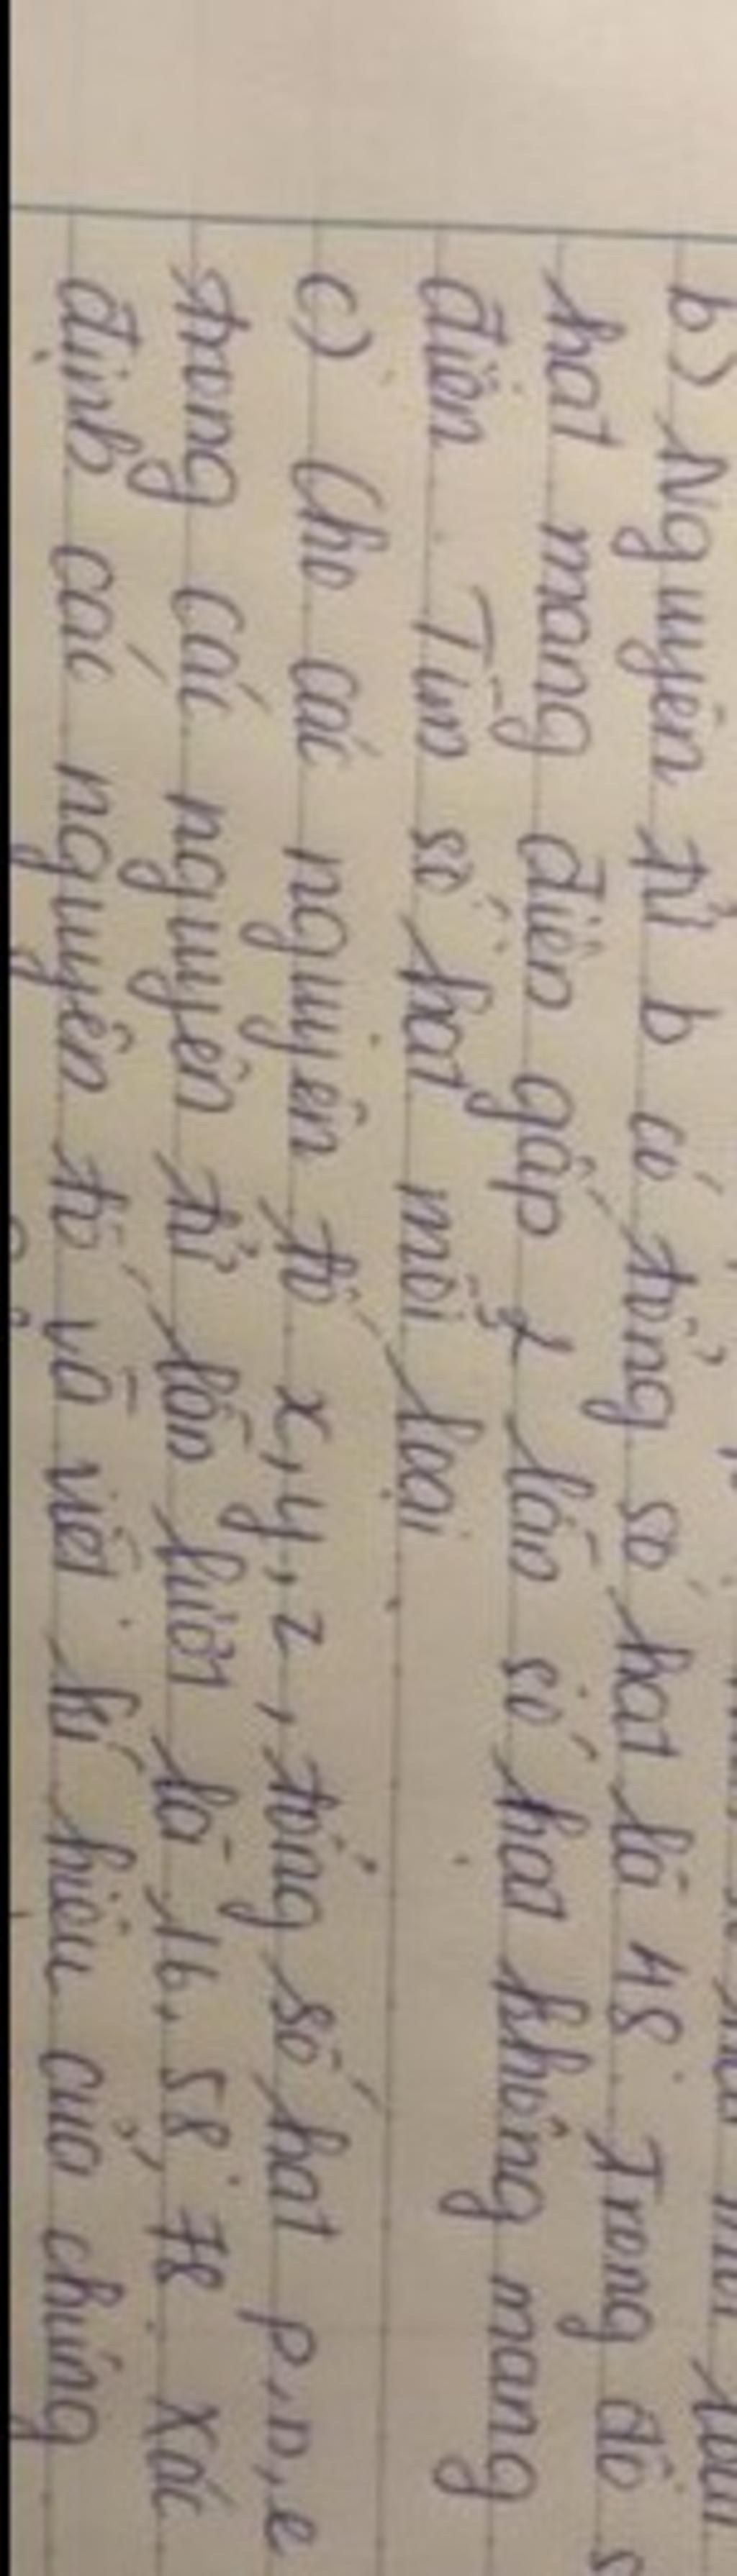 b) Nguyên tử b có tổng số hạt là 48. Trong đó s
hạt mang điện gấp 2 lần số hạt không mang
điện. Tìm số hạt mỗi loại
c) Cho các nguyên tố x, y, z, tổng số hạt p, n, e
trong các nguyên tử lần lượt là 16, 58, 78. Xác
định các nguyên tố và viết kí hiệu của chúng